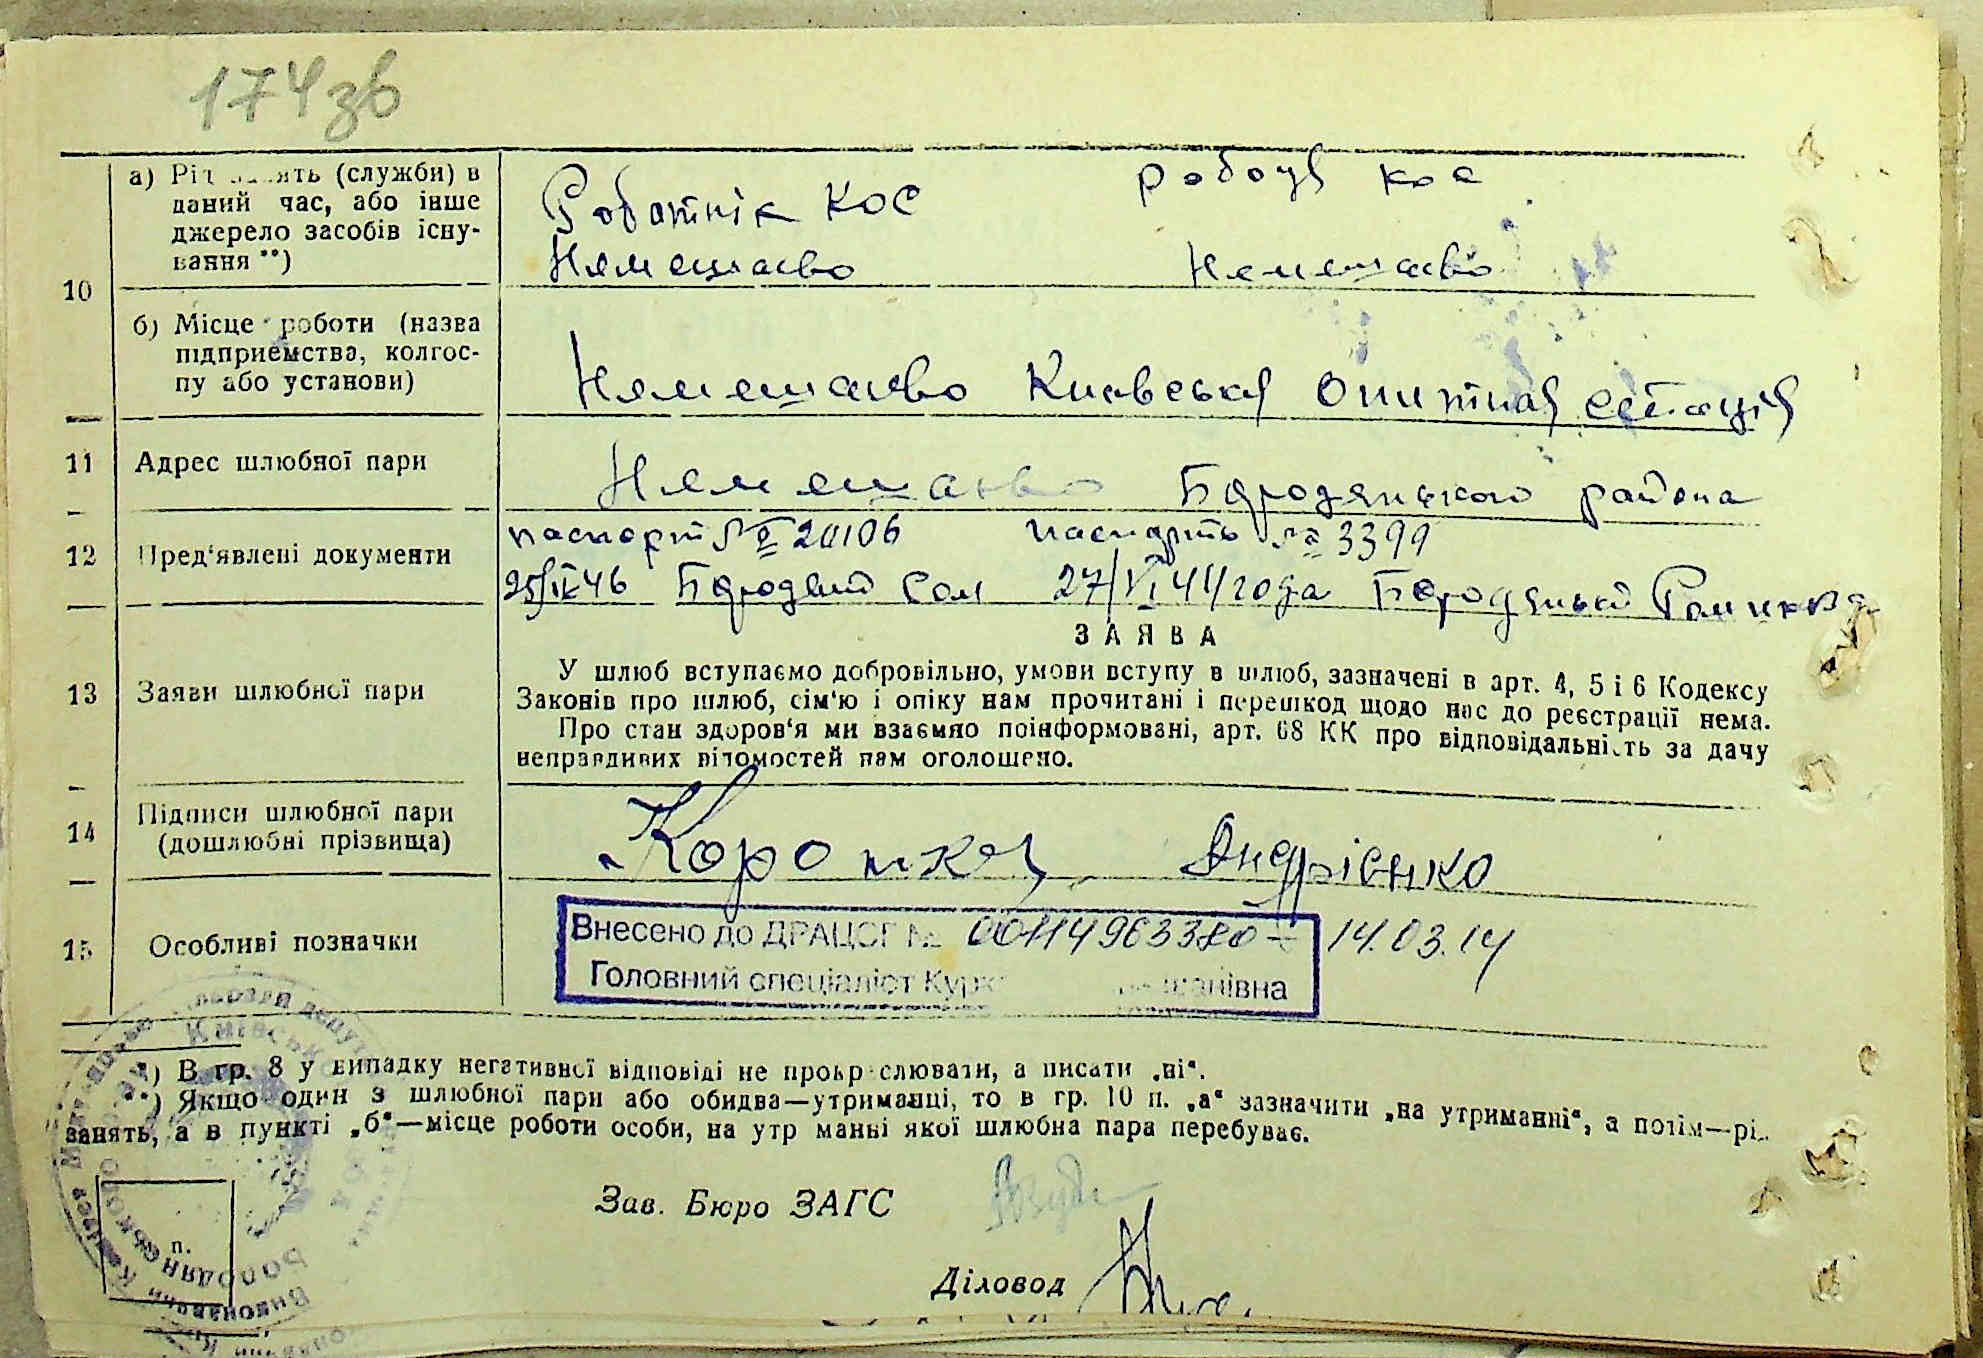 174зв
а) Рід занять (служби) в
даний час, або інше
джерело засобів існу-
вання **)
Роботнік КОС
Немешаево
робочя кос
Немешаево
10
б) Місце роботи (назва
підприємства, колгос-
пу або установи)
Немешаево Киевская Опитная
11 Адрес шлюбної пари
Немешаево Бородянского района
12 Пред'явлені документи
паспорт № 20106 паспорть № 3399
25/IX 46 27/VI 44 года
ЗАЯВА
13 Заяви шлюбної пари
У шлюб вступаємо добровільно, умови вступу в шлюб, зазначені в арт. 4, 5 і 6 Кодексу
Законів про шлюб, сім'ю і опіку нам прочитані і перешкод щодо нас до реєстрації нема.
Про стан здоров'я ми взаємно поінформовані, арт. 68 КК про відповідальність за дачу
неправдивих відомостей нам оголошено.
14 Підписи шлюбної пари
(дошлюбні прізвища)
Андрієнко
15 Особливі позначки
Внесено до ДРАЦСГ № 00114963380 - 14.03.14
Головний спеціаліст
*) В гр. 8 у випадку негативної відповіді не прокреслювати, а писати „ні“.
**) Якщо один з шлюбної пари або обидва—утриманці, то в гр. 10 п. „а“ зазначити „на утриманні“, а потім—рід
занять, а в пункті „б“—місце роботи особи, на утриманні якої шлюбна пара перебуває.
Зав. Бюро ЗАГС
п.
Діловод